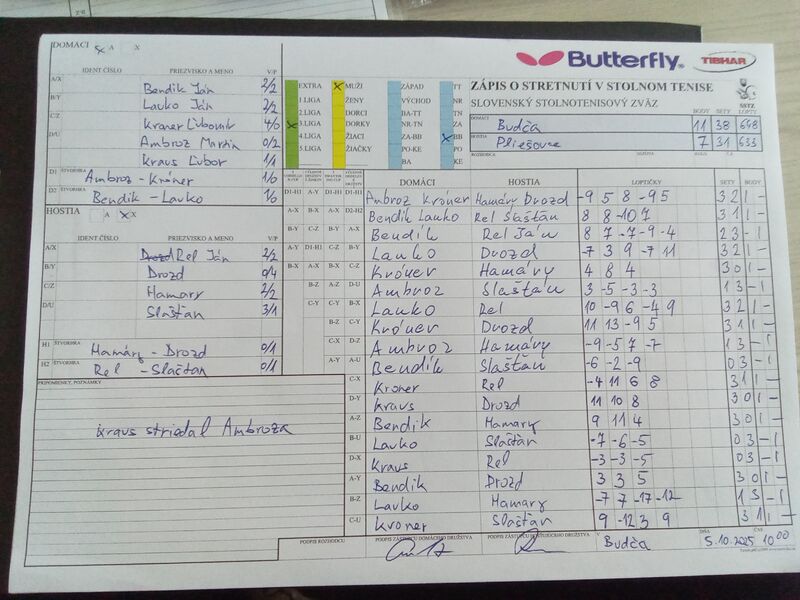 DOMÁCI A X
IDENT ČÍSLO PRIEZVISKO A MENO V/P
A/X Bendik Ján 2/2
B/Y Lauko Ján 2/2
C/Z Kroner Ľubomír 4/0
D/U Ambroz Martin 0/2
Kraus Ľubor 1/1
D1 ŠTVORHRA Ambroz - Króner 1/0
D2 ŠTVORHRA Bendik - Lauko 1/0
HOSTIA A X
IDENT ČÍSLO PRIEZVISKO A MENO V/P
A/X Rel Ján 2/2
B/Y Drozd 0/4
C/Z Hamary 2/2
D/U Slašťan 3/1
H1 ŠTVORHRA Hamáry - Drozd 0/1
H2 ŠTVORHRA Rel - Slašťan 0/1
PRIPOMIENKY, POZNÁMKY
Kraus striedal Ambroza
Butterfly TIBHAR
EXTRA MUŽI ZÁPAD TT
1.LIGA ŽENY VÝCHOD NR
2.LIGA DORCI BA-TT TN
3.LIGA DORKY NR-TN ZA
4.LIGA ŽIACI ZA-BB BB
5.LIGA ŽIAČKY PO-KE PO
BA KE
ZÁPIS O STRETNUTÍ V STOLNOM TENISE
SLOVENSKÝ STOLNOTENISOVÝ ZVÄZ
SSTZ
BODY SETY LOPTY
DOMÁCI Budča 11 38 648
HOSTIA Pliešovce 7 31 633
DOMÁCI HOSTIA LOPTIČKY SETY BODY
D1-H1 Ambroz Króner Hamáry Drozd -9 5 8 -9 5 3 2 1 -
Bendik Lauko Rel Slašťan 8 8 -10 7 3 1 1 -
Bendik Rel Ján 8 7 -7 -9 -4 2 3 - 1
Lauko Drozd -7 3 9 -7 11 3 2 1 -
Króner Hamáry 4 8 4 3 0 1 -
Ambroz Slašťan 3 -5 -3 -3 1 3 - 1
Lauko Rel 10 -9 6 -4 9 3 2 1 -
Króner Drozd 11 13 -9 5 3 1 1 -
Ambroz Hamáry -9 -5 7 -7 1 3 - 1
Bendik Slašťan -6 -2 -9 0 3 - 1
C-X Kroner Rel -4 11 6 8 3 1 1 -
D-Y Kraus Drozd 11 10 8 3 0 1 -
A-Z Bendik Hamary 9 11 4 3 0 1 -
B-U Lauko Slašťan -7 -6 -5 0 3 - 1
D-X Kraus Rel -3 -3 -5 0 3 - 1
A-Y Bendik Drozd 3 3 5 3 0 1 -
B-Z Lauko Hamary -7 7 -17 -12 1 3 - 1
C-U Kroner Slašťan 9 -12 3 9 3 1 1 -
PODPIS ROZHODCU PODPIS ZÁSTUPCU DOMÁCEHO DRUŽSTVA PODPIS ZÁSTUPCU HOSŤUJÚCEHO DRUŽSTVA V Budča DŇA 5.10.2025 ČAS 10 00